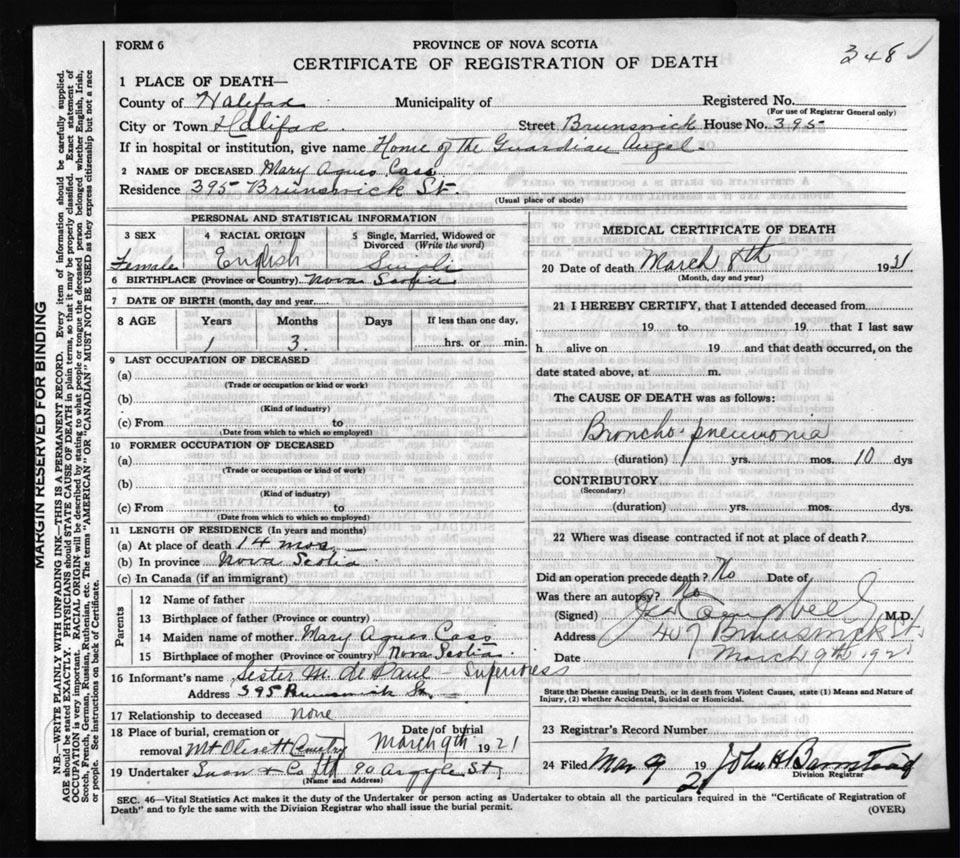 FORM 6
PROVINCE OF NOVA SCOTIA
CERTIFICATE OF REGISTRATION OF DEATH
348
1 PLACE OF DEATH—
County of Halifax Municipality of Registered No.
(For use of Registrar General only)
City or Town Halifax. Street Brunswick House No. 395
If in hospital or institution, give name Home of the Guardian Angel
2 NAME OF DECEASED Mary Agnes Cass
Residence 395 Brunswick St.
(Usual place of abode)
PERSONAL AND STATISTICAL INFORMATION
3 SEX 4 RACIAL ORIGIN 5 Single, Married, Widowed or Divorced (Write the word)
Female English
6 BIRTHPLACE (Province or Country) Nova Scotia
7 DATE OF BIRTH (month, day and year)
8 AGE Years Months Days If less than one day,
1 3 hrs. or min.
9 LAST OCCUPATION OF DECEASED
(a)
(Trade or occupation or kind or work)
(b)
(Kind of industry)
(c) From to
(Date from which to which so employed)
10 FORMER OCCUPATION OF DECEASED
(a)
(Trade or occupation or kind or work)
(b)
(Kind of industry)
(c) From to
(Date from which to which so employed)
11 LENGTH OF RESIDENCE (In years and months)
(a) At place of death 14 mos
(b) In province Nova Scotia
(c) In Canada (if an immigrant)
Parents
12 Name of father
13 Birthplace of father (Province or country)
14 Maiden name of mother Mary Agnes Cass
15 Birthplace of mother (Province or country) Nova Scotia
16 Informant's name Sister M. de Paul - Superioress
Address 395 Brunswick St.
17 Relationship to deceased none
18 Place of burial, cremation or removal Mt Olivet Cemetry Date of burial March 9th 1921
19 Undertaker Snow & Co Ltd 90 Argyle St.
(Name and Address)
MEDICAL CERTIFICATE OF DEATH
20 Date of death March 8th 1921
(Month, day and year)
21 I HEREBY CERTIFY, that I attended deceased from
19 to 19 that I last saw
h alive on 19 and that death occurred, on the
date stated above, at m.
The CAUSE OF DEATH was as follows:
Broncho-pneumonia
(duration) yrs. mos. 10 dys
CONTRIBUTORY
(Secondary)
(duration) yrs. mos. dys.
22 Where was disease contracted if not at place of death?
Did an operation precede death? No Date of
Was there an autopsy? No
(Signed) Campbell M.D.
Address 407 Brunswick St
Date March 9th 1921
State the Disease causing Death, or in death from Violent Causes, state (1) Means and Nature of
Injury, (2) whether Accidental, Suicidal or Homicidal.
23 Registrar's Record Number
24 Filed Mar 9 1921 John H Barnstead
Division Registrar
SEC. 46—Vital Statistics Act makes it the duty of the Undertaker or person acting as Undertaker to obtain all the particulars required in the "Certificate of Registration of
Death" and to fyle the same with the Division Registrar who shall issue the burial permit.
(OVER)
MARGIN RESERVED FOR BINDING
N.B.—WRITE PLAINLY WITH UNFADING INK—THIS IS A PERMANENT RECORD. Every item of information should be carefully supplied.
AGE should be stated EXACTLY. PHYSICIANS should STATE CAUSE OF DEATH in plain terms, so that it may be properly classified. Exact statement of
OCCUPATION is very important. RACIAL ORIGIN will be described by stating to what people or tongue the deceased person belonged whether English, Irish,
Scotch, French, German, Russian, Ruthenian, etc. The terms "AMERICAN" OR "CANADIAN" MUST NOT BE USED as they express citizenship but not a race
or people. See instructions on back of Certificate.